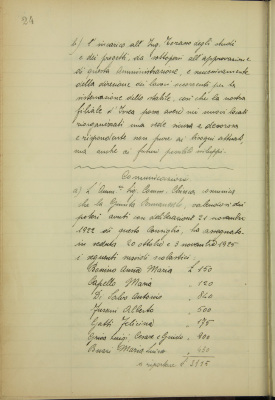 24
b) l'incarico all'Ing. Torano degli studi
e dei progetti, da sottoporsi all'approvazione
di questa Amministrazione, e successivamente
della direzione dei lavori occorrenti per la
sistemazione dello stabile, così che la nostra
filiale d'Ivrea possa avere nei nuovi locali
riorganizzati una sede sicura e decorosa
e rispondente non pure ai bisogni attuali,
ma anche ai futuri possibili sviluppi.
Comunicazioni
a) L' Amm. Ing. Comm. Chiesa comunica
che la Giunta Comunale, valendosi dei
poteri avuti con deliberazione 21 novembre
1922 di questo Consiglio, ha assegnato
in sedute 20 ottobre e 3 novembre 1925
i seguenti sussidi scolastici:
Maria £ 150
Capello Maria " 120
Di Salvo Antonio " 840
Alberto " 500
Gatti Felicina " 175
Luigi, Cesare e Guido " 900
Maria Luisa " 450
a riportare £ 3135